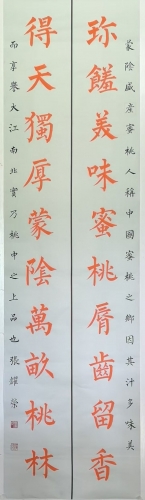 蒙陰盛產蜜桃人稱中國蜜桃之鄉因其汁多味美
珎饈美味蜜桃脣齒留香
得天獨厚蒙陰萬畝桃林
而享譽大江南北實乃桃中之上品也張榮